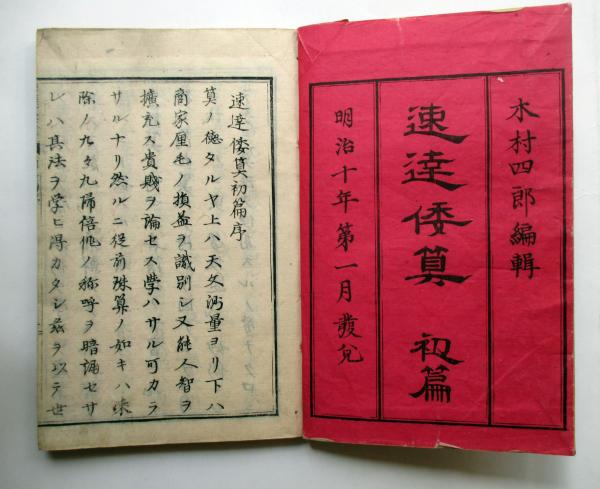 木村四郎編輯
速達倭算 初篇
明治十年第一月發兌
速達倭算初篇序
算ノ徳タルヤ上ハ天文測量ヨリ下ハ
商家厘毛ノ損益ヲ識別シ又能人智ヲ
擴充ス貴賎ヲ論セス學ハサル可カラ
サルナリ然ルニ従前珠算ノ如キハ乗
除ノ九々九帰倍佻ノ称呼ヲ暗誦セサ
レハ其法ヲ学ヒ得カタシ茲ヲ以テ世